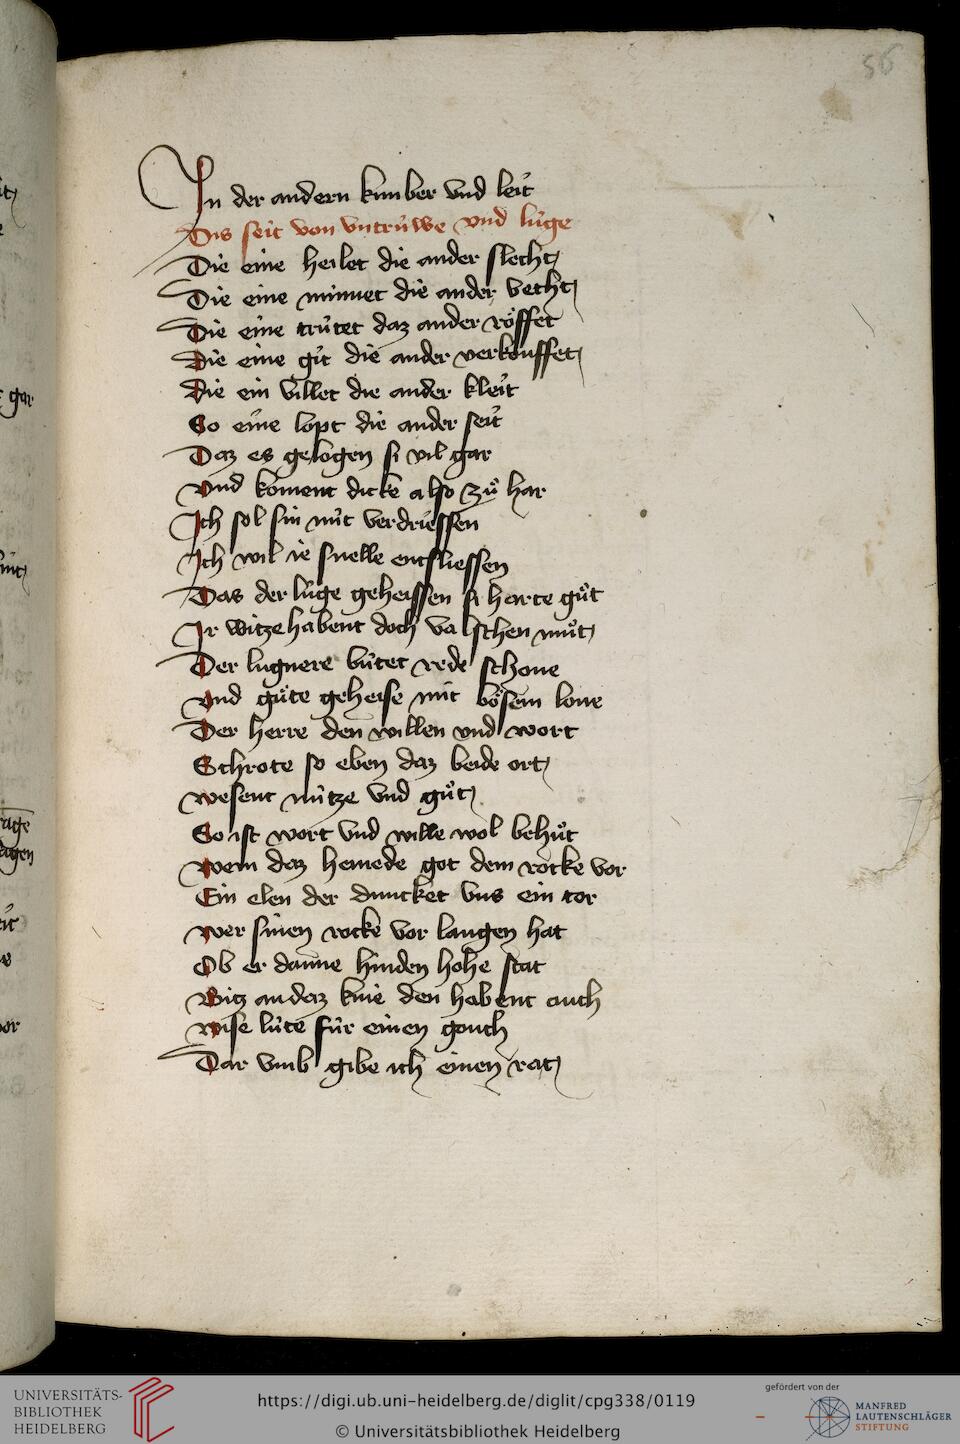 56
In der andern kumber vnd leit
Dis seit von vntrúwe vnd lúge
Die eine heilet die ander slecht
Die eine minnet die ander vecht
Die eine trútet daz ander röffet
Die eine git die ander verkouffet
Die ein villet die ander kleit
So eine lopt die ander seit
Daz es gelogen si vil gar
Vnd koment dicke also zů har
Ich sol sin nút verdriessen
Ich wil ie snelle entfliessen
Das der lúge geheissen si harte gůt
Ir witze habent doch valschen můt
Der lugnere bútet rede schone
Vnd gůte geheise mit bösem lone
Der herre den willen vnd wort
Schrote so eben daz beide ort
wesent nútze vnd gůt
So ist wort vnd wille wol behůt
wem daz hemede got dem rocke vor
Ein elen der duncket vns ein tor
wer sinen rocke vor langen hat
Ob er danne hinden hohe stat
Bitz an daz knie den habent ouch
wise lúte fúr einen gouch
Dar vmb gibe ich einen rat
gar
UNIVERSITÄTS-
BIBLIOTHEK
HEIDELBERG
https://digi.ub.uni-heidelberg.de/diglit/cpg338/0119
© Universitätsbibliothek Heidelberg
gefördert von der
MANFRED
LAUTENSCHLÄGER
STIFTUNG